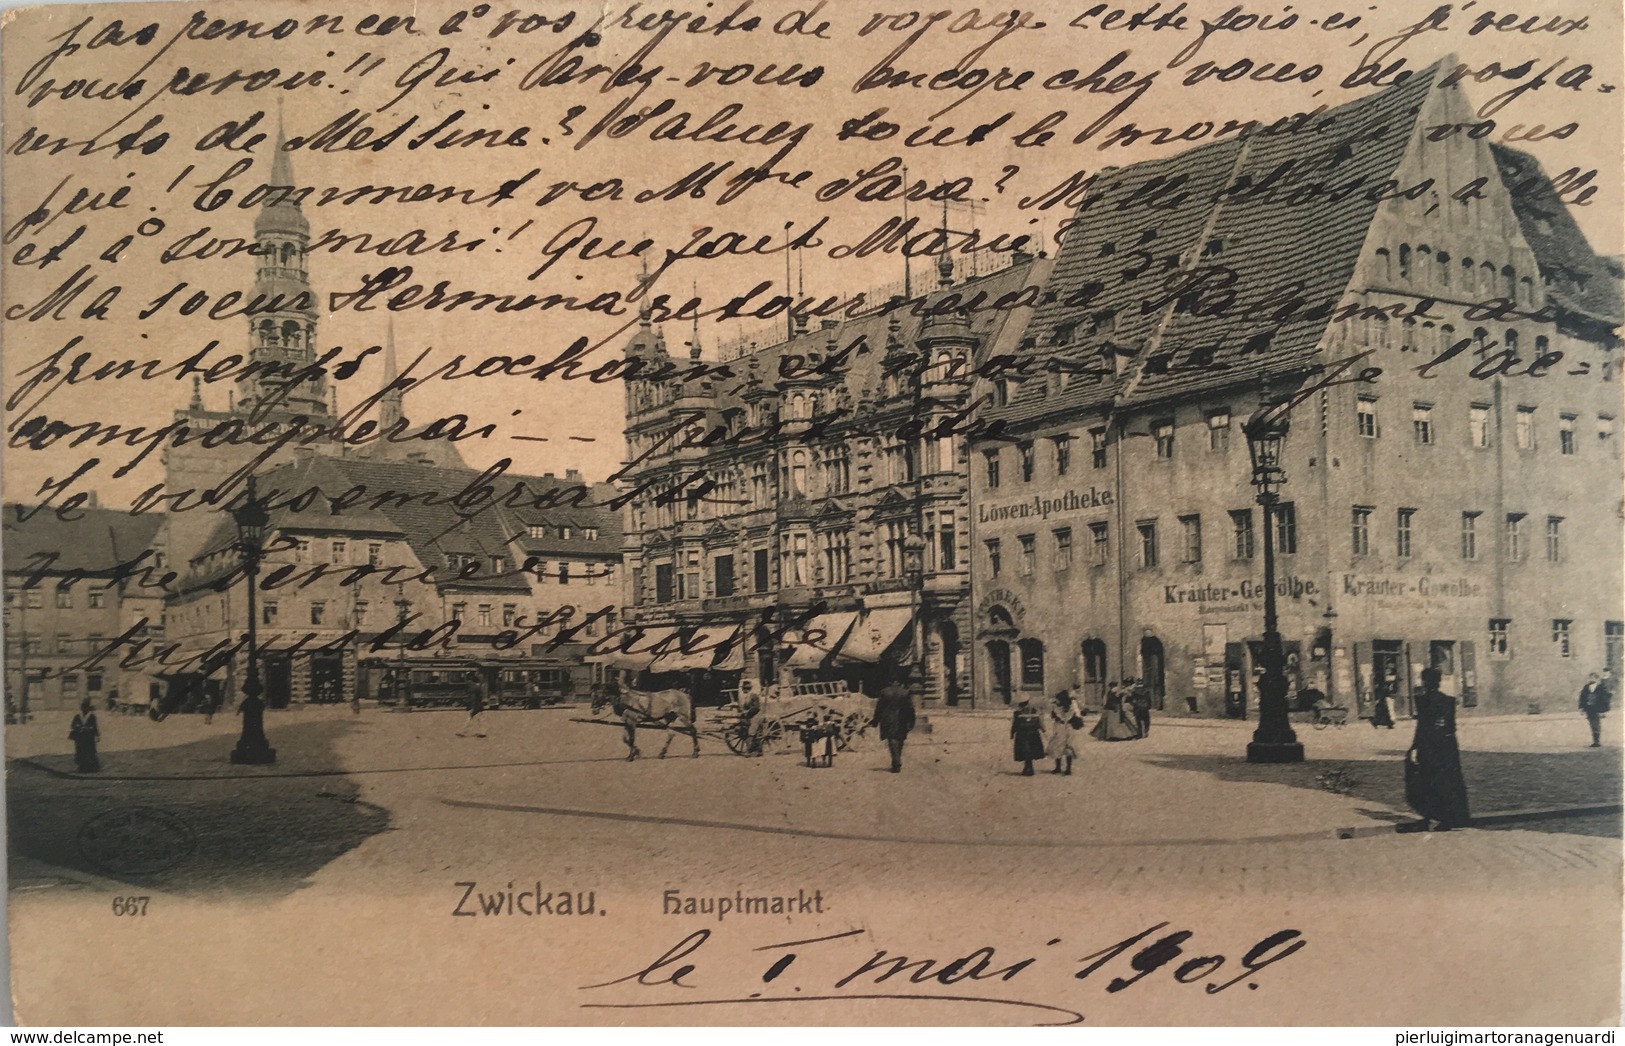 pas renoncer à vos projets de voyage cette fois-ci, je veux
vous revoir!! Qui avez-vous encore chez vous, de vos pa-
rents de Messine? Saluez tout le monde, je vous
prie! Comment va Mme Sara? Mille choses, à elle
et à son mari! Que fait Marie?
Ma soeur Hermina retournera à Palerme au
printemps prochain, et moi — — je l'ac-
compagnerai — — peut-être — — —
Je vous embrasse
votre dévouée
Augusta
Löwen-Apotheke.
Kräuter-Gewölbe.
Kräuter-Gewölbe
APOTHEKE
667
Zwickau. Hauptmarkt
le I. mai 1909.
delcampe.net
pierluigimartoranagenuardi